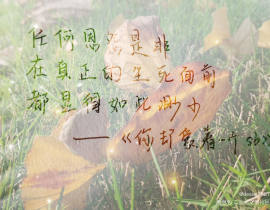 任何恩怨是非
在真正的生死面前
都显得如此渺小
——《你却爱着一个sbx